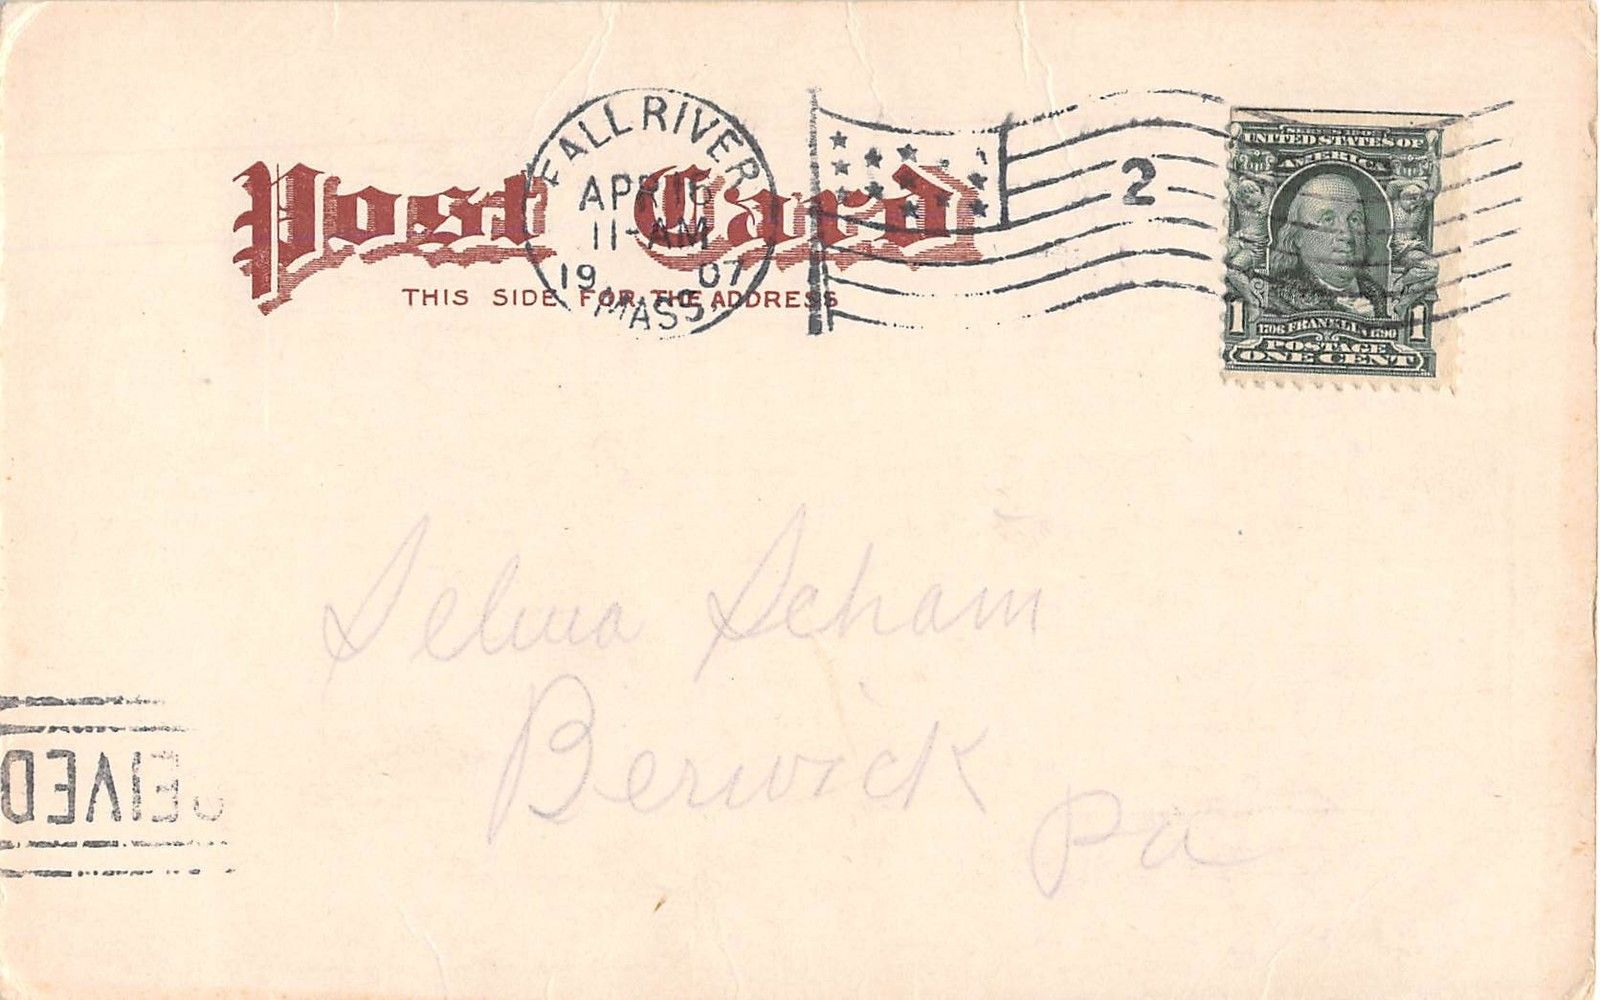 Post Card
THIS SIDE FOR THE ADDRESS
FALL RIVER
APR 16
11-AM
19 07
MASS.
2
UNITED STATES OF
AMERICA
1 1706 FRANKLIN 1790 1
POSTAGE
ONE CENT
Selma Scham
Berwick
Pa
EIVED